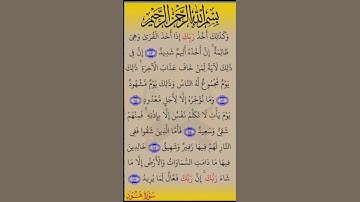 بِسْمِ اللَّهِ الرَّحْمَٰنِ الرَّحِيمِ
وَكَذَٰلِكَ أَخْذُ رَبِّكَ إِذَا أَخَذَ الْقُرَىٰ وَهِيَ
ظَالِمَةٌ ۚ إِنَّ أَخْذَهُ أَلِيمٌ شَدِيدٌ ۝ إِنَّ فِي
ذَٰلِكَ لَآيَةً لِّمَنْ خَافَ عَذَابَ الْآخِرَةِ ۚ ذَٰلِكَ
يَوْمٌ مَّجْمُوعٌ لَّهُ النَّاسُ وَذَٰلِكَ يَوْمٌ مَّشْهُودٌ
۝ وَمَا نُؤَخِّرُهُ إِلَّا لِأَجَلٍ مَّعْدُودٍ ۝
يَوْمَ يَأْتِ لَا تَكَلَّمُ نَفْسٌ إِلَّا بِإِذْنِهِ ۚ فَمِنْهُمْ
شَقِيٌّ وَسَعِيدٌ ۝ فَأَمَّا الَّذِينَ شَقُوا فَفِي
النَّارِ لَهُمْ فِيهَا زَفِيرٌ وَشَهِيقٌ ۝ خَالِدِينَ
فِيهَا مَا دَامَتِ السَّمَاوَاتُ وَالْأَرْضُ إِلَّا مَا
شَاءَ رَبُّكَ ۚ إِنَّ رَبَّكَ فَعَّالٌ لِّمَا يُرِيدُ ۝
سورة هود